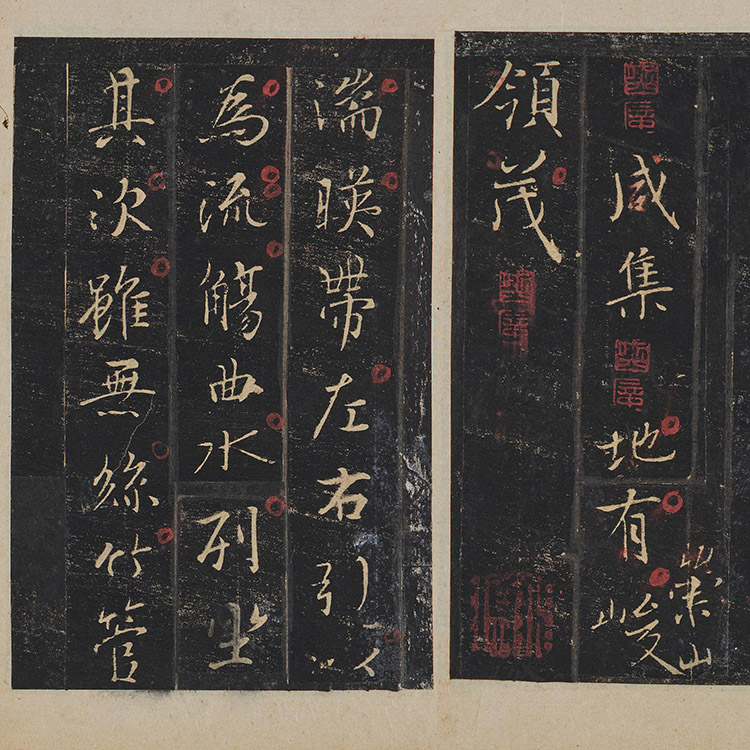 咸集地有崇山峻
領茂
湍暎帶左右引以
為流觴曲水列坐
其次雖無絲竹管